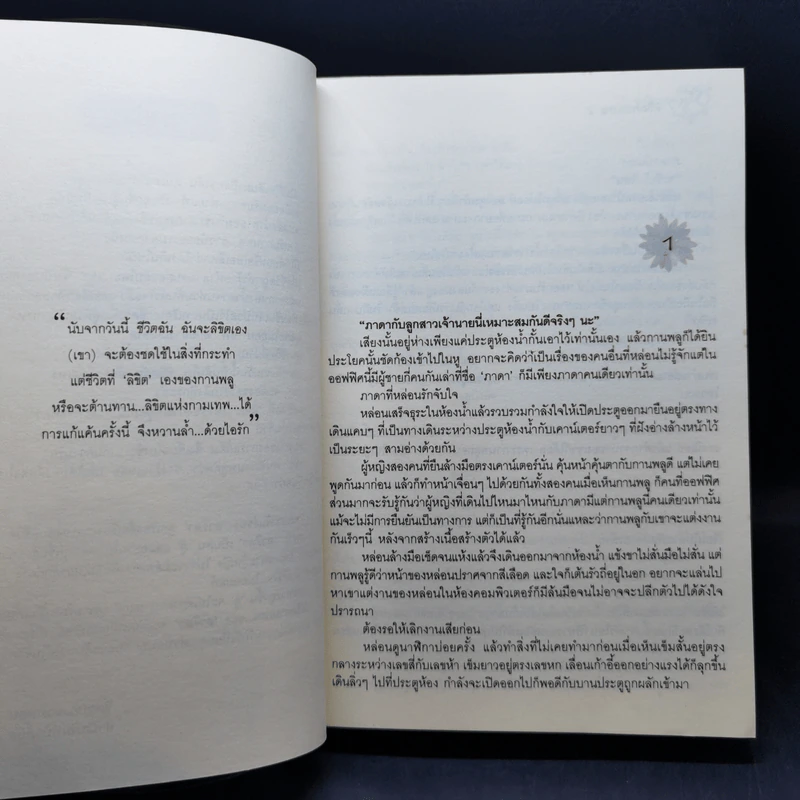 “นับจากวันนี้ ชีวิตฉัน ฉันจะลิขิตเอง
(เขา) จะต้องชดใช้ในสิ่งที่กระทำ
แต่ชีวิตที่ ‘ลิขิต’ เองของกานพลู
หรือจะต้านทาน...ลิขิตแห่งกามเทพ...ได้
การแก้แค้นครั้งนี้ จึงหวานล้ำ...ด้วยไอรัก”
1
“ภาดากับลูกสาวเจ้านายนี่เหมาะสมกันดีจริงๆ นะ”
เสียงนั้นอยู่ห่างเพียงแค่ประตูห้องน้ำกั้นเอาไว้เท่านั้นเอง แล้วกานพลูก็ได้ยิน
ประโยคนั้นชัดก้องเข้าไปในหู อยากจะคิดว่าเป็นเรื่องของคนอื่นที่หล่อนไม่รู้จักแต่ใน
ออฟฟิศนี้มีผู้ชายกี่คนกันเล่าที่ชื่อ ‘ภาดา’ ก็มีเพียงภาดาคนเดียวเท่านั้น
ภาดาที่หล่อนรักจับใจ
หล่อนเสร็จธุระในห้องน้ำแล้วรวบรวมกำลังใจให้เปิดประตูออกมายืนอยู่ตรงทาง
เดินแคบๆ ที่เป็นทางเดินระหว่างประตูห้องน้ำกับเคาน์เตอร์ยาวๆ ที่ฝังอ่างล้างหน้าไว้
เป็นระยะๆ สามอ่างด้วยกัน
ผู้หญิงสองคนที่ยืนล้างมือตรงเคาน์เตอร์นั่น คุ้นหน้าคุ้นตากับกานพลูดี แต่ไม่เคย
พูดกันมาก่อน แล้วก็ทำหน้าเจื่อนๆ ไปด้วยกันทั้งสองคนเมื่อเห็นกานพลู ก็คนที่ออฟฟิศ
ส่วนมากจะรับรู้กันว่าผู้หญิงที่เดินไปไหนมาไหนกับภาดามีแต่กานพลูนี่คนเดียวเท่านั้น
แม้จะไม่มีการยืนยันเป็นทางการ แต่ก็เป็นที่รู้กันอีกนั่นแหละว่ากานพลูกับเขาจะแต่งงาน
กันเร็วๆนี้ หลังจากสร้างเนื้อสร้างตัวได้แล้ว
หล่อนล้างมือเช็ดจนแห้งแล้วจึงเดินออกมาจากห้องน้ำ แข้งขาไม่สั่นมือไม่สั่น แต่
กานพลูรู้ดีว่าหน้าของหล่อนปราศจากสีเลือด และใจก็เต้นรัวถี่อยู่ในอก อยากจะแล่นไป
หาเขาแต่งานของหล่อนในห้องคอมพิวเตอร์ก็มีล้นมือจนไม่อาจจะปลีกตัวไปได้ดังใจ
ปรารถนา
ต้องรอให้เลิกงานเสียก่อน
หล่อนดูนาฬิกาบ่อยครั้ง แล้วทำสิ่งที่ไม่เคยทำมาก่อนเมื่อเห็นเข็มสั้นอยู่ตรง
กลางระหว่างเลขสี่กับเลขห้า เข็มยาวอยู่ตรงเลขหก เลื่อนเก้าอี้ออกอย่างแรงได้ก็ลุกขึ้น
เดินลิ่วๆ ไปที่ประตูห้อง กำลังจะเปิดออกไปก็พอดีกับบานประตูถูกผลักเข้ามา